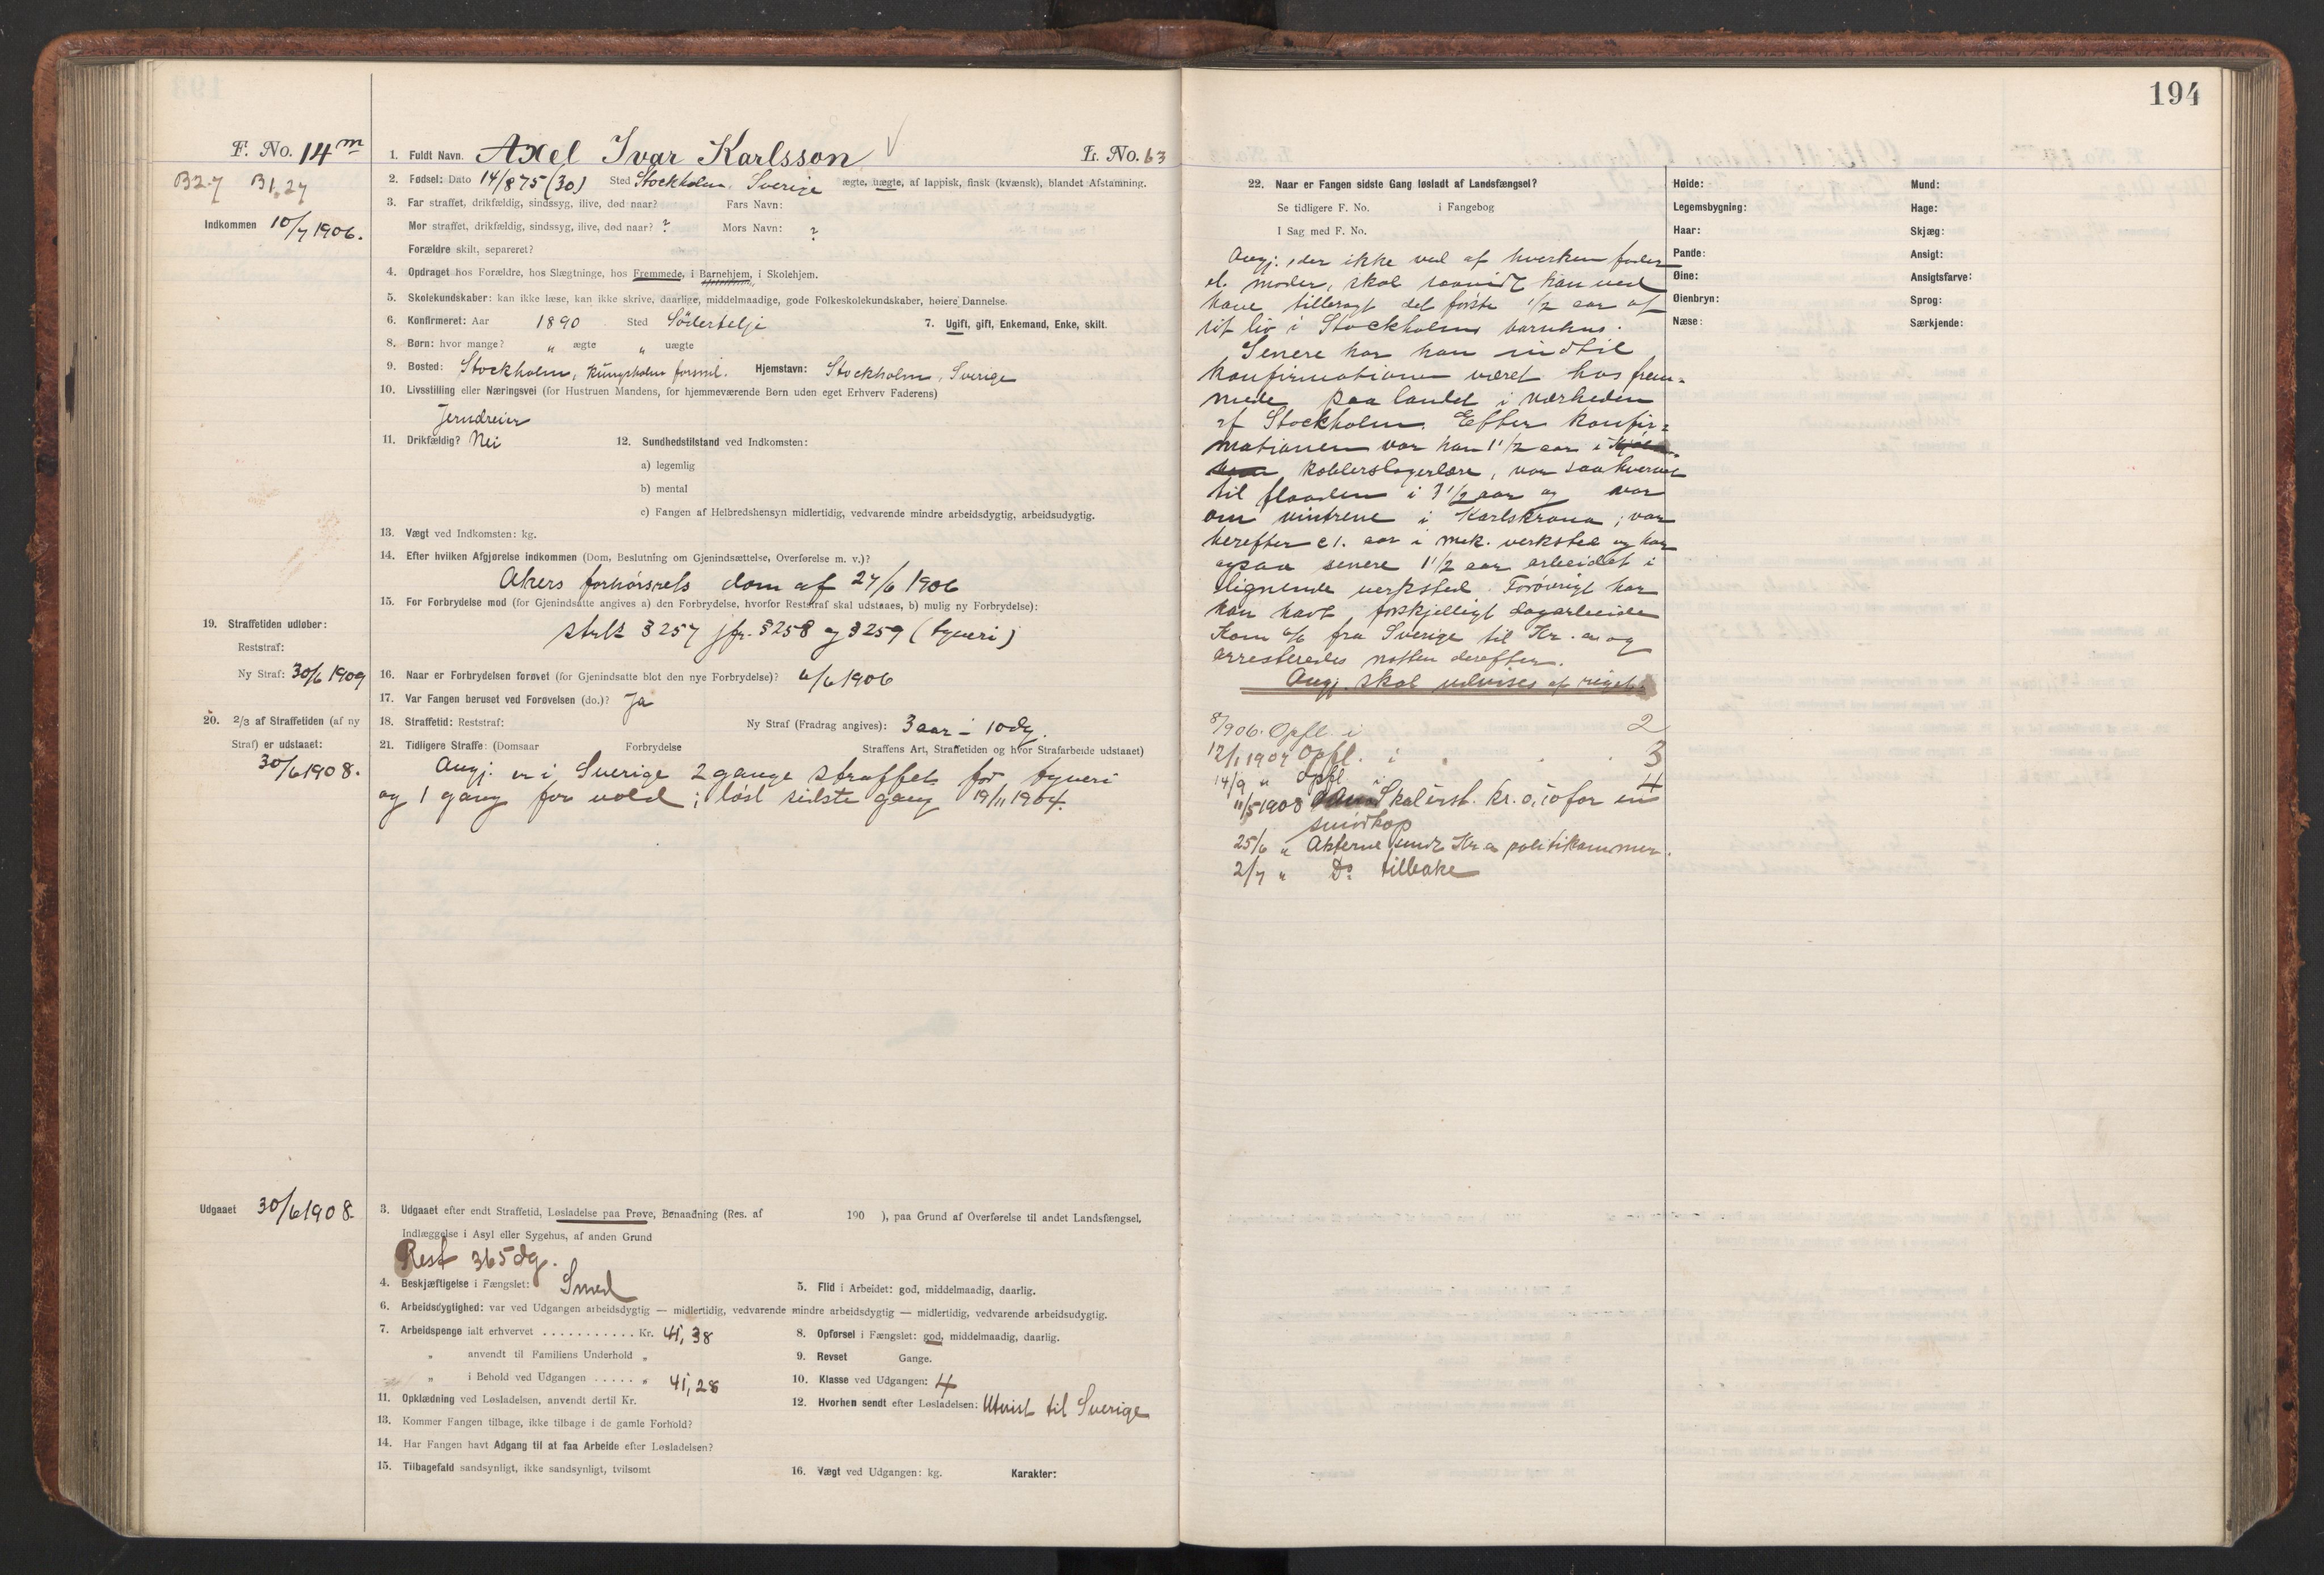 194
F. No. 14 m
B2.7 B1,27
Indkommen 10/7 1906.
1. Fuldt Navn. Axel Ivar Karlsson
L. No. 63
2. Fødsel: Dato 14/8 75 (30) Sted Stockholm, Sverige ægte, uægte, af lappisk, finsk (kvænsk), blandet Afstamning.
3. Far straffet, drikfældig, sindssyg, ilive, død naar? Fars Navn:
Mor straffet, drikfældig, sindssyg, ilive, død naar? ? Mors Navn: ?
Forældre skilt, separeret?
4. Opdraget hos Forældre, hos Slægtninge, hos Fremmede, i Barnehjem, i Skolehjem.
5. Skolekundskaber: kan ikke læse, kan ikke skrive, daarlige, middelmaadige, gode Folkeskolekundskaber, høiere Dannelse.
6. Konfirmeret: Aar 1890 Sted Södertelje 7. Ugift, gift, Enkemand, Enke, skilt.
8. Børn: hvor mange? " ægte " uægte
9. Bosted: Stockholm, Kungsholm forsml. Hjemstavn: Stockholm, Sverige
10. Livsstilling eller Næringsvei (for Hustruen Mandens, for hjemmeværende Børn uden eget Erhverv Faderens)
Jerndreier
11. Drikfældig? Nei 12. Sundhedstilstand ved Indkomsten:
a) legemlig
b) mental
c) Fangen af Helbredshensyn midlertidig, vedvarende mindre arbeidsdygtig, arbeidsudygtig.
13. Vægt ved Indkomsten: kg.
14. Efter hvilken Afgjørelse indkommen (Dom, Beslutning om Gjenindsættelse, Overførelse m. v.)?
Akers forhørsrets dom af 27/6 1906
15. For Forbrydelse mod (for Gjenindsatte angives a) den Forbrydelse, hvorfor Reststraf skal udstaaes, b) mulig ny Forbrydelse):
strl § 257 jfr. § 258 og § 259 (tyveri)
19. Straffetiden udløber:
Reststraf:
Ny Straf: 30/6 1909
16. Naar er Forbrydelsen forøvet (for Gjenindsatte blot den nye Forbrydelse)? 6/6 1906
17. Var Fangen beruset ved Forøvelsen (do.)? Ja
20. 2/3 af Straffetiden (af ny
Straf) er udstaaet:
30/6 1908.
18. Straffetid: Reststraf: Ny Straf (Fradrag angives): 3 aar – 10 dg.
21. Tidligere Straffe: (Domsaar Forbrydelse Straffens Art, Straffetiden og hvor Strafarbeide udstaaet)
Angj. er i Sverige 2 gange straffet for tyveri
og 1 gang for vold; løsl sidste gang 19/11 1904.
Udgaaet 30/6 1908
3. Udgaaet efter endt Straffetid, Løsladelse paa Prøve, Benaadning (Res. af 190 ), paa Grund af Overførelse til andet Landsfængsel,
Indlæggelse i Asyl eller Sygehus, af anden Grund
Rest 365 dg.
4. Beskjæftigelse i Fængslet: Smed 5. Flid i Arbeidet: god, middelmaadig, daarlig.
6. Arbeidsdygtighed: var ved Udgangen arbeidsdygtig — midlertidig, vedvarende mindre arbeidsdygtig — midlertidig, vedvarende arbeidsudygtig.
7. Arbeidspenge ialt erhvervet . . . . . . . . . . . Kr. 41,38 8. Opførsel i Fængslet: god, middelmaadig, daarlig.
" anvendt til Familiens Underhold " 9. Revset Gange.
" i Behold ved Udgangen . . . . . " 41,28 10. Klasse ved Udgangen: 4
11. Opklædning ved Løsladelsen, anvendt dertil Kr. 12. Hvorhen sendt efter Løsladelsen: Utvist til Sverige
13. Kommer Fangen tilbage, ikke tilbage i de gamle Forhold?
14. Har Fangen havt Adgang til at faa Arbeide efter Løsladelsen?
15. Tilbagefald sandsynligt, ikke sandsynligt, tvilsomt 16. Vægt ved Udgangen: kg. Karakter:
22. Naar er Fangen sidste Gang løsladt af Landsfængsel?
Se tidligere F. No. i Fangebog
I Sag med F. No.
Angj., der ikke ved af hverken fader
el. moder, skal saavidt han ved
have tilbragt det første 1/2 aar af
sit liv i Stockholms barnhus.
Senere har han indtil
konfirmationen været hos frem-
mede paa landet i nærheden
af Stockholm. Efter konfir-
mationen var han 1 1/2 aar i
kobberslagerlære, var saa hvervet
til flaaden i 3 1/2 aar og var
om vintrene i Karlskrona; var
herefter c 1. aar i mek. verksted og har
ogsaa senere 1 1/2 aar arbeidet i
lignende verksted. Forøvrigt har
han havt forskjelligt dagarbeide
Kom 6/6 fra Sverige til Kr.a og
arresteredes natten derefter.
Angj. skal udvises af riget.
8/906. Opfl. i 2
12/1 1907 Opfl. i . . 3
14/9 " Opfl i 4
11/5 1908 Skal erst. kr. 0,10 for en
smørkop
25/6 " Akterne sendt Kr.a politikammer.
2/7 " Do tilbake
Høide: Mund:
Legemsbygning: Hage:
Haar: Skjæg:
Pande: Ansigt:
Øine: Ansigtsfarve:
Øienbryn: Sprog:
Næse: Særkjende: